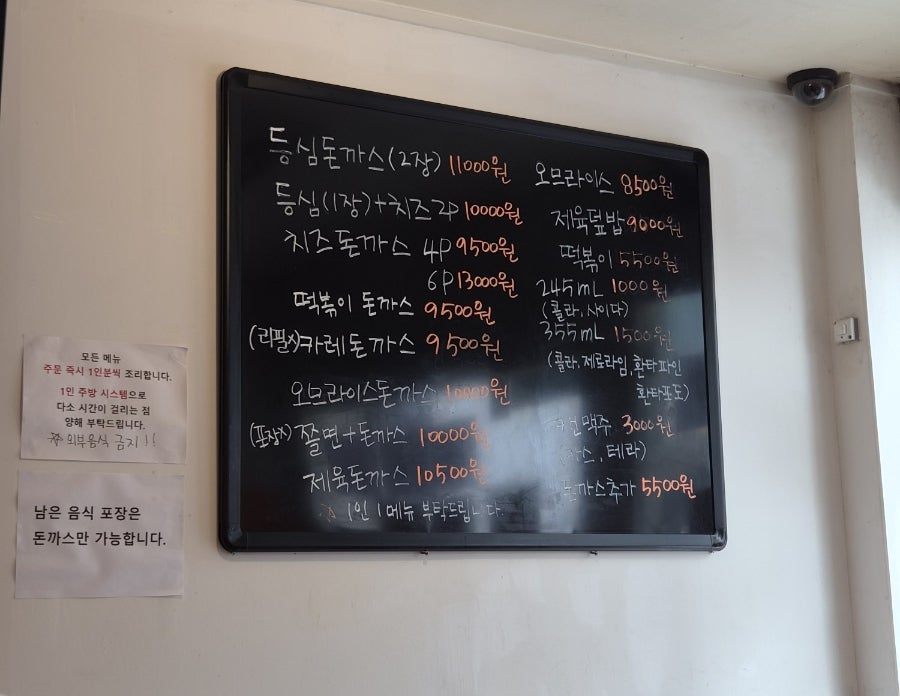 등심돈까스(2장) 11000원
등심(1장)+치즈2P 10000원
치즈돈까스 4P 9500원
6P 13000원
떡볶이 돈까스 9500원
(리필X)카레돈까스 9500원
오므라이스돈까스 10000원
(포장X) 쫄면+돈까스 10000원
제육돈까스 10500원
※ 1인 1메뉴 부탁드립니다.
오므라이스 8500원
제육덮밥 9000원
떡볶이 5500원
245mL 1000원
(콜라, 사이다)
355mL 1500원
(콜라, 제로라임, 환타파인
환타포도)
맥주 3000원
테라)
돈까스추가 5500원
모든 메뉴
주문 즉시 1인분씩 조리합니다.
1인 주방 시스템으로
다소 시간이 걸리는 점
양해 부탁드립니다.
※ 외부음식 금지!!
남은 음식 포장은
돈까스만 가능합니다.